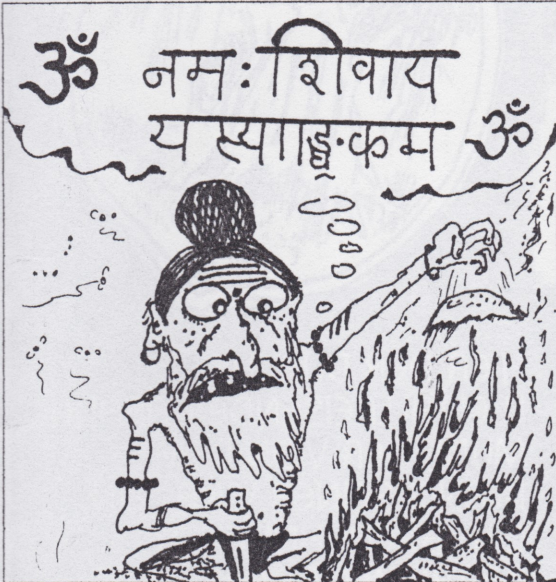 ॐ नमः शिवाय
य स्याङ्कम ॐ